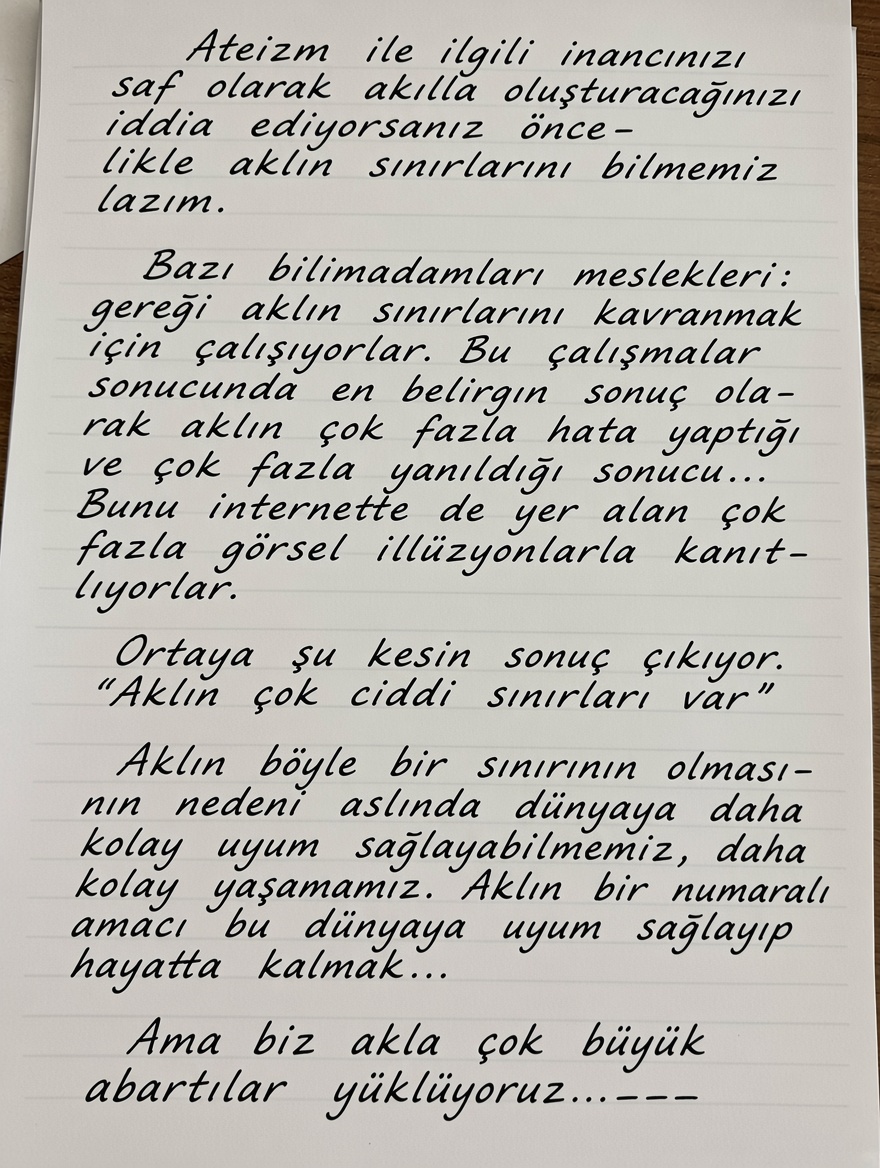 Ateizm ile ilgili inancınızı
saf olarak akılla oluşturacağınızı
iddia ediyorsanız önce-
likle aklın sınırlarını bilmemiz
lazım.
Bazı bilimadamları meslekleri:
gereği aklın sınırlarını kavranmak
için çalışıyorlar. Bu çalışmalar
sonucunda en belirgın sonuç ola-
rak aklın çok fazla hata yaptığı
ve çok fazla yanıldığı sonucu...
Bunu internette de yer alan çok
fazla görsel illüzyonlarla kanıt-
lıyorlar.
Ortaya şu kesin sonuç çıkıyor.
“Aklın çok ciddi sınırları var”
Aklın böyle bir sınırının olması-
nın nedeni aslında dünyaya daha
kolay uyum sağlayabilmemiz, daha
kolay yaşamamız. Aklın bir numaralı
amacı bu dünyaya uyum sağlayıp
hayatta kalmak...
Ama biz akla çok büyük
abartılar yüklüyoruz...---